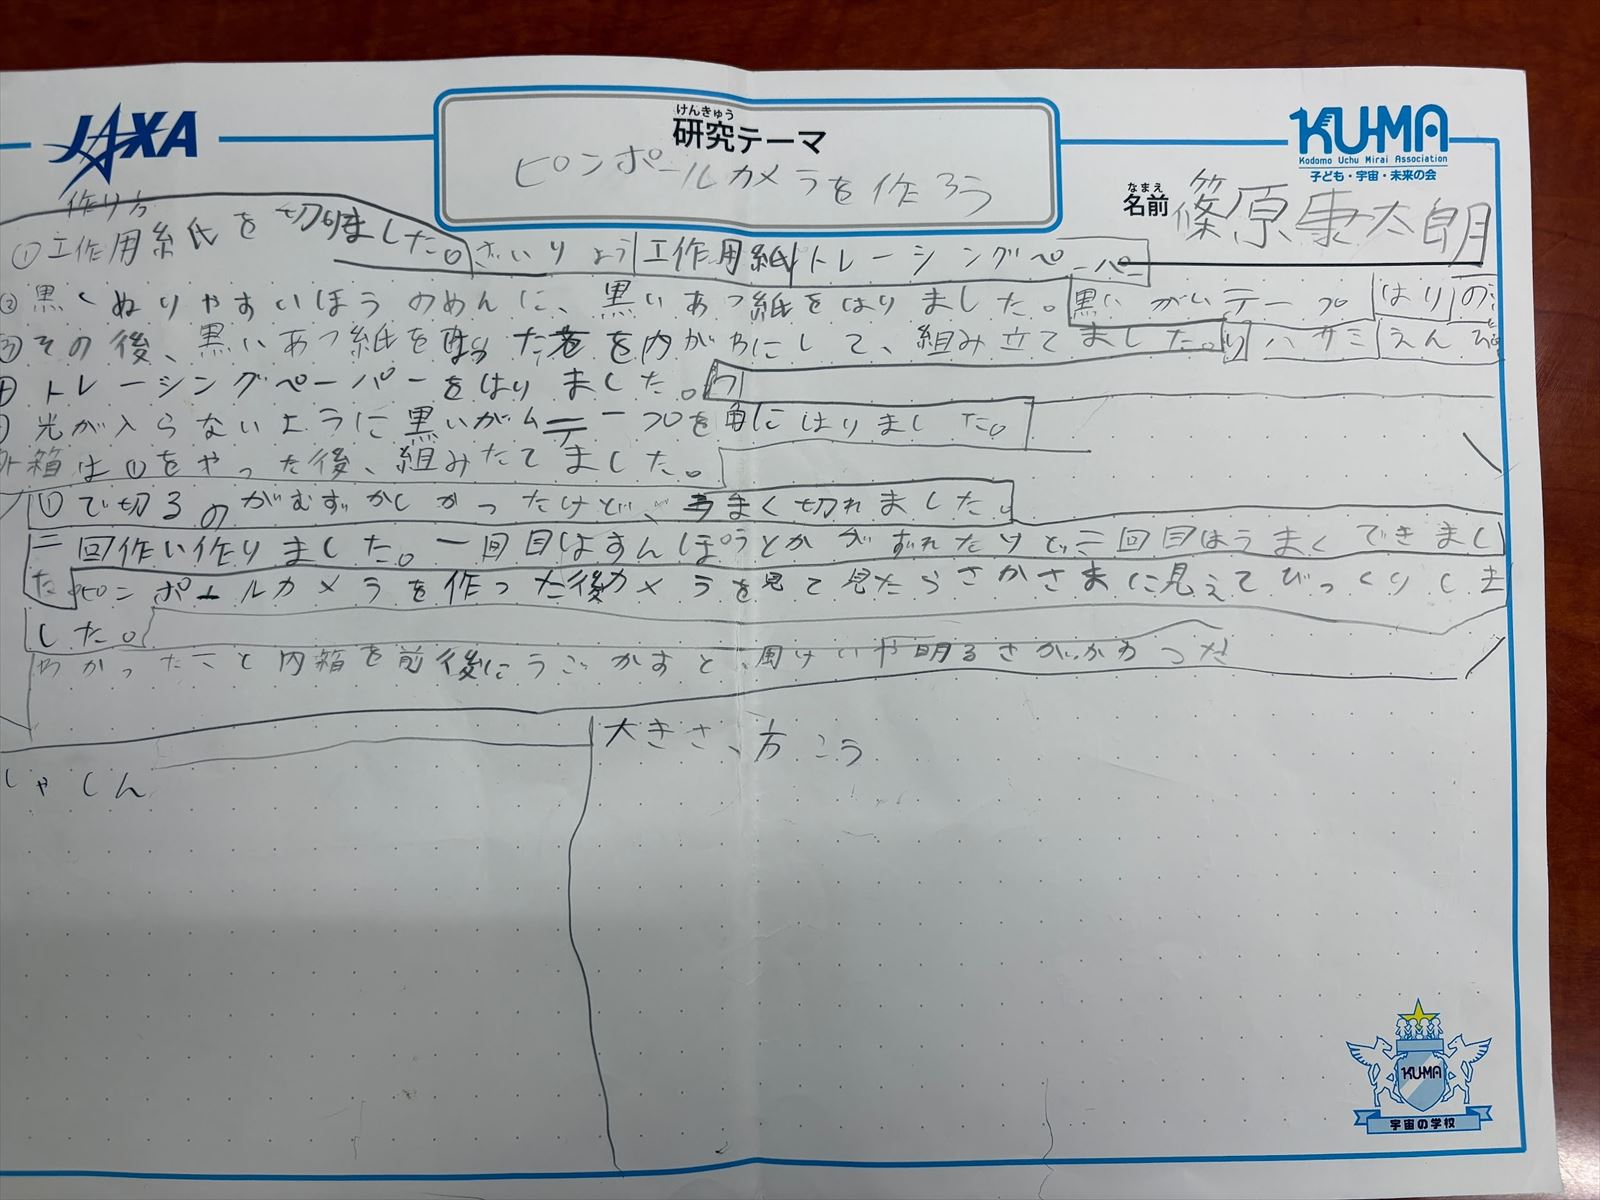 JAXA
けんきゅう
研究テーマ
ピンポールカメラを作ろう
KU-MA
Kodomo Uchu Mirai Association
子ども・宇宙・未来の会
なまえ
名前 篠原康太朗
作り方
①工作用紙を切りました。
ざいりょう 工作用紙 トレーシングペーパー
②黒くぬりやすいほうのめんに、黒いあつ紙をはりました。
黒いがムテープ はり の
③その後、黒いあつ紙をはった を内がわにして、組み立てました。
り ハサミ えんぴ
トレーシングペーパーをはりました。
つ
光が入らないように黒いがムテープを角にはりました。
外箱は①をやった後、組みたてました。
①で切るのがむずかしかったけど、うまく切れました。
二回作い作りました。一回目はすんぽうとかがずれたけど、二回目はうまくできまし
た。ピンポールカメラを作った後カメラを見て見たらさかさまに見えてびっくりしま
した。
わかったこと内箱を前後にうごかすと、風けいや明るさがかわった
大きさ、方こう
しゃしん
KU-MA
宇宙の学校